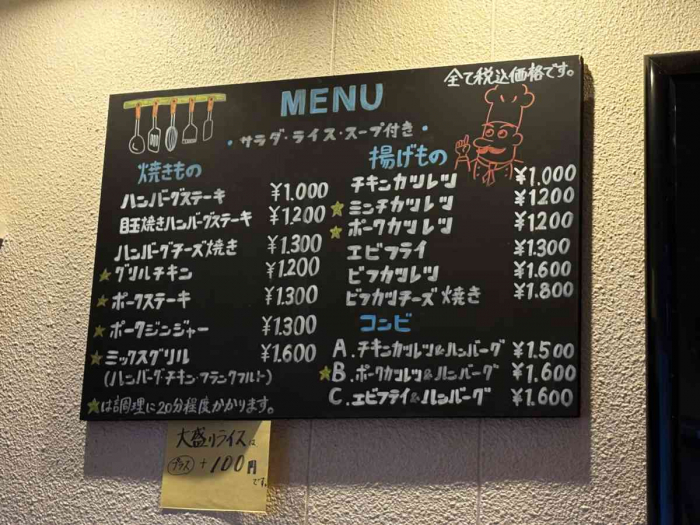 全て税込価格です。
MENU
・サラダ・ライス・スープ付き・
焼きもの
ハンバーグステーキ ¥1.000
目玉焼きハンバーグステーキ ¥1.200
ハンバーグチーズ焼き ¥1.300
★グリルチキン ¥1.200
★ポークステーキ ¥1.300
★ポークジンジャー ¥1.300
★ミックスグリル ¥1.600
(ハンバーグ・チキン・フランクフルト)
★は調理に20分程度かかります。
揚げもの
チキンカツレツ ¥1.000
★ミンチカツレツ ¥1200
★ポークカツレツ ¥1.200
エビフライ ¥1.300
ビフカツレツ ¥1.600
ビフカツチーズ焼き ¥1.800
コンビ
A.チキンカツレツ&ハンバーグ ¥1.500
★B.ポークカツレツ&ハンバーグ ¥1.600
C.エビフライ&ハンバーグ ¥1.600
大盛りライスは
プラス +100円
です。